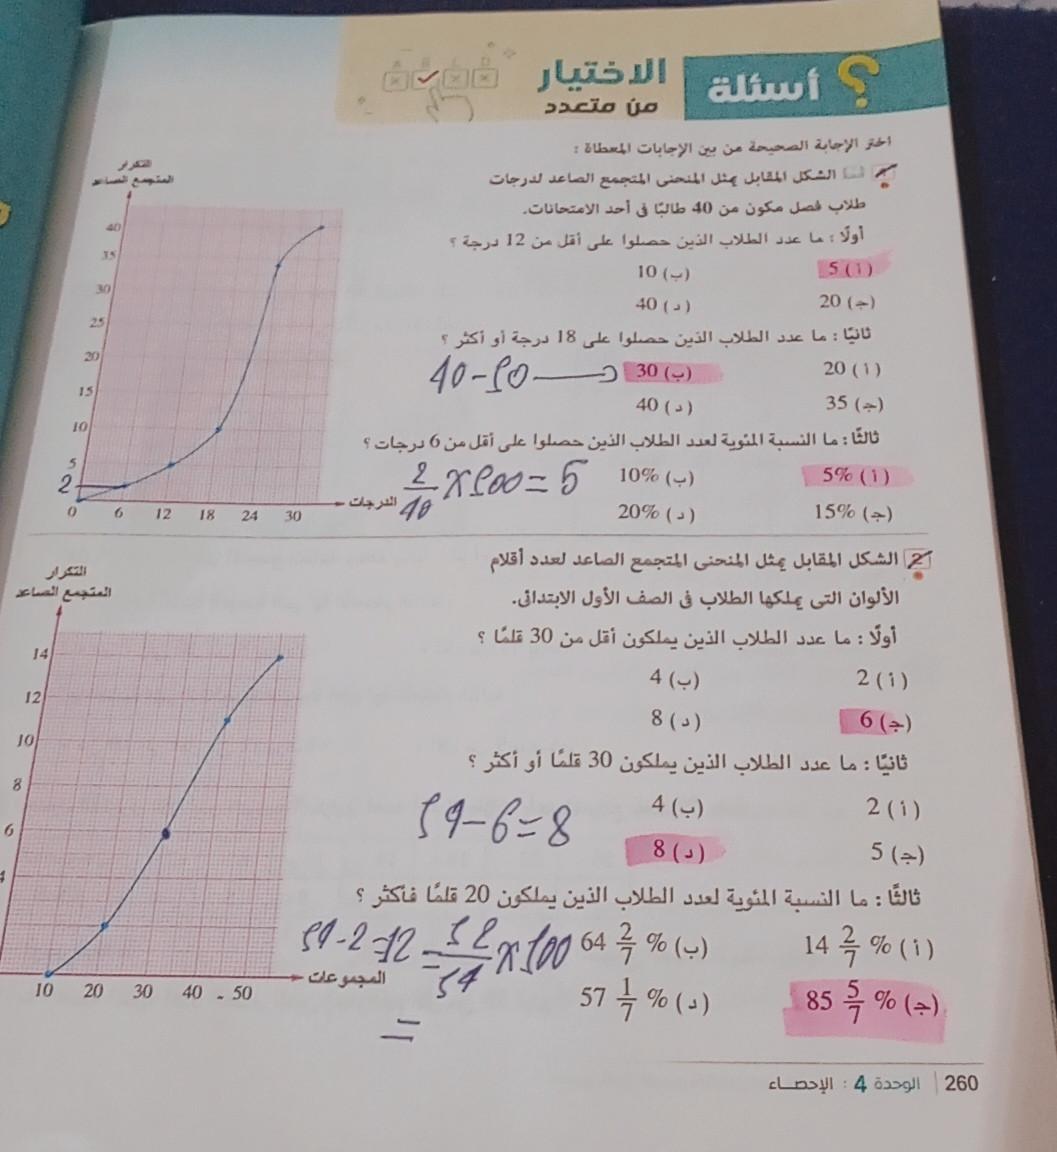 أسئلة
الاختيار
من متعدد
A B C D
اختر الإجابة الصحيحة من بين الإجابات المعطاة :
1 الشكل المقابل يمثل المنحنى المتجمع الصاعد لدرجات
طلاب فصل مكون من 40 طالبًا فى أحد الامتحانات.
أولًا : ما عدد الطلاب الذين حصلوا على أقل من 12 درجة ؟
(أ) 5 (ب) 10
(جـ) 20 (د) 40
ثانيًا : ما عدد الطلاب الذين حصلوا على 18 درجة أو أكثر ؟
(أ) 20 (ب) 30
40-10
(جـ) 35 (د) 40
ثالثًا : ما النسبة المئوية لعدد الطلاب الذين حصلوا على أقل من 6 درجات ؟
(أ) 5% (ب) 10%
2/40 × 100 = 5
(جـ) 15% (د) 20%
التكرار
المتجمع الصاعد
40
35
30
25
20
15
10
5
2
0 6 12 18 24 30
الدرجات
2 الشكل المقابل يمثل المنحنى المتجمع الصاعد لعدد أقلام
الألوان التى يملكها الطلاب فى الصف الأول الابتدائى.
أولًا : ما عدد الطلاب الذين يملكون أقل من 30 قلمًا ؟
(أ) 2 (ب) 4
(جـ) 6 (د) 8
ثانيًا : ما عدد الطلاب الذين يملكون 30 قلمًا أو أكثر ؟
(أ) 2 (ب) 4
14-6=8
(جـ) 5 (د) 8
ثالثًا : ما النسبة المئوية لعدد الطلاب الذين يملكون 20 قلمًا فأكثر ؟
(أ) 14 2/7 % (ب) 64 2/7 %
14-2=12 = 12/14 × 100
=
(جـ) 85 5/7 % (د) 57 1/7 %
التكرار
المتجمع الصاعد
14
12
10
8
6
4
10 20 30 40 50
المجموعات
260 الوحدة 4 : الإحصاء